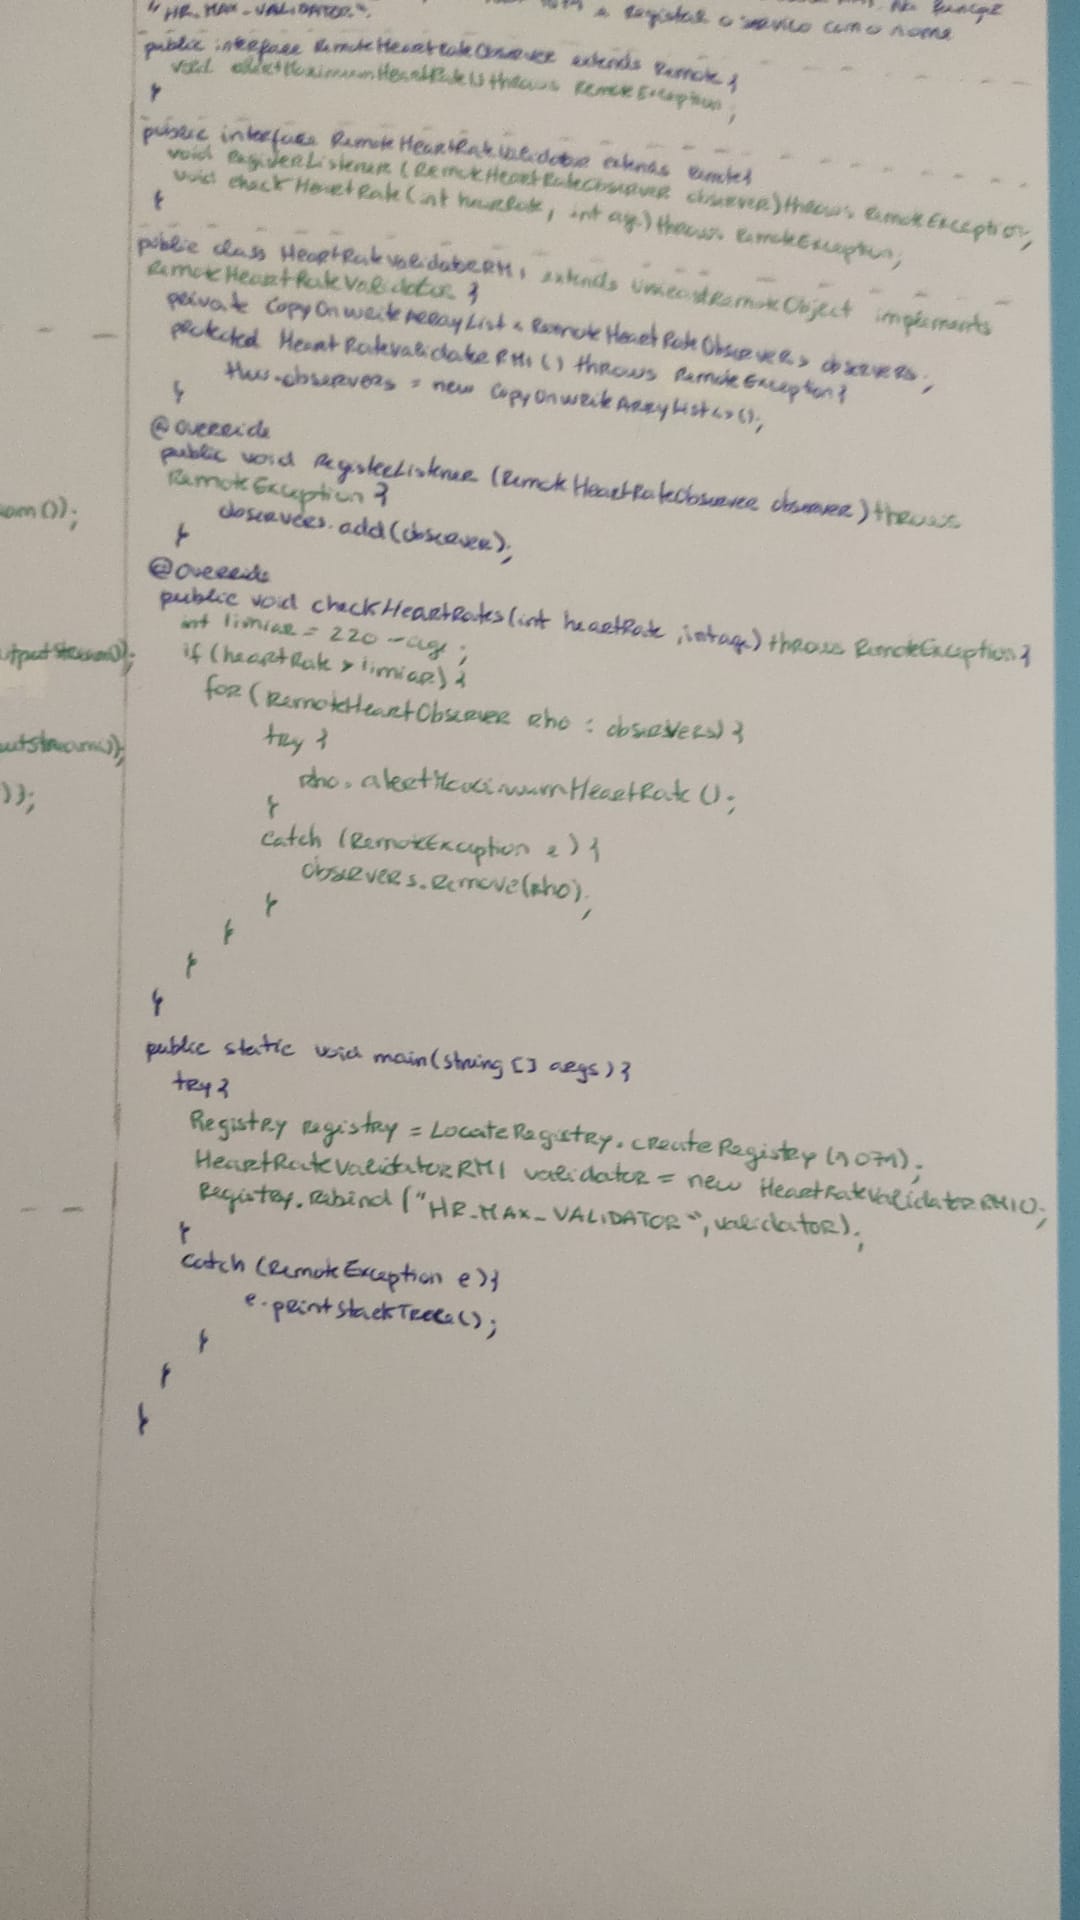 a registar o serviço como nome
"HR_MAX_VALIDATOR".
public interface RemoteHeartRateObserver extends Remote {
void alertMaximumHeartRate() throws RemoteException;
}
public interface RemoteHeartRateValidator extends Remote {
void registerListener (RemoteHeartRateObserver observer) throws RemoteException;
void checkHeartRate (int heartRate, int age) throws RemoteException;
}
public class HeartRateValidatorRMI extends UnicastRemoteObject implements
RemoteHeartRateValidator {
private CopyOnWriteArrayList < RemoteHeartRateObserver > observers;
protected HeartRateValidatorRMI () throws RemoteException {
this.observers = new CopyOnWriteArrayList<>();
}
@override
public void RegisterListener (RemoteHeartRateObserver observer) throws
RemoteException {
observers.add(observer);
}
@override
public void checkHeartRates (int heartRate, int age) throws RemoteException {
int limiar = 220 - age;
if (heartRate > limiar) {
for (RemoteHeartObserver rho : observers) {
try {
rho.alertMaximumHeartRate ();
}
catch (RemoteException e) {
observers.remove(rho);
}
}
}
}
public static void main(string [] args) {
try {
Registry registry = LocateRegistry.createRegistry (1071);
HeartRateValidatorRMI validator = new HeartRateValidatorRMI();
Registry.rebind ("HR_MAX_VALIDATOR", validator);
}
catch (RemoteException e) {
e.printStackTrace();
}
}
}